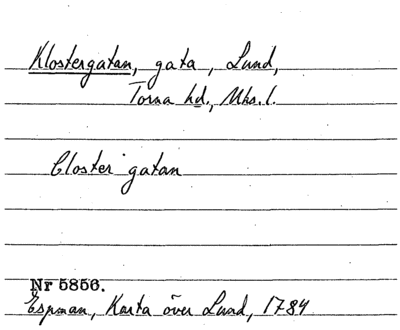 Klostergatan, gata, Lund,
Torna hd., Mhs. l.
Closter gatan
Nr 5856.
Espman, Karta över Lund, 1784